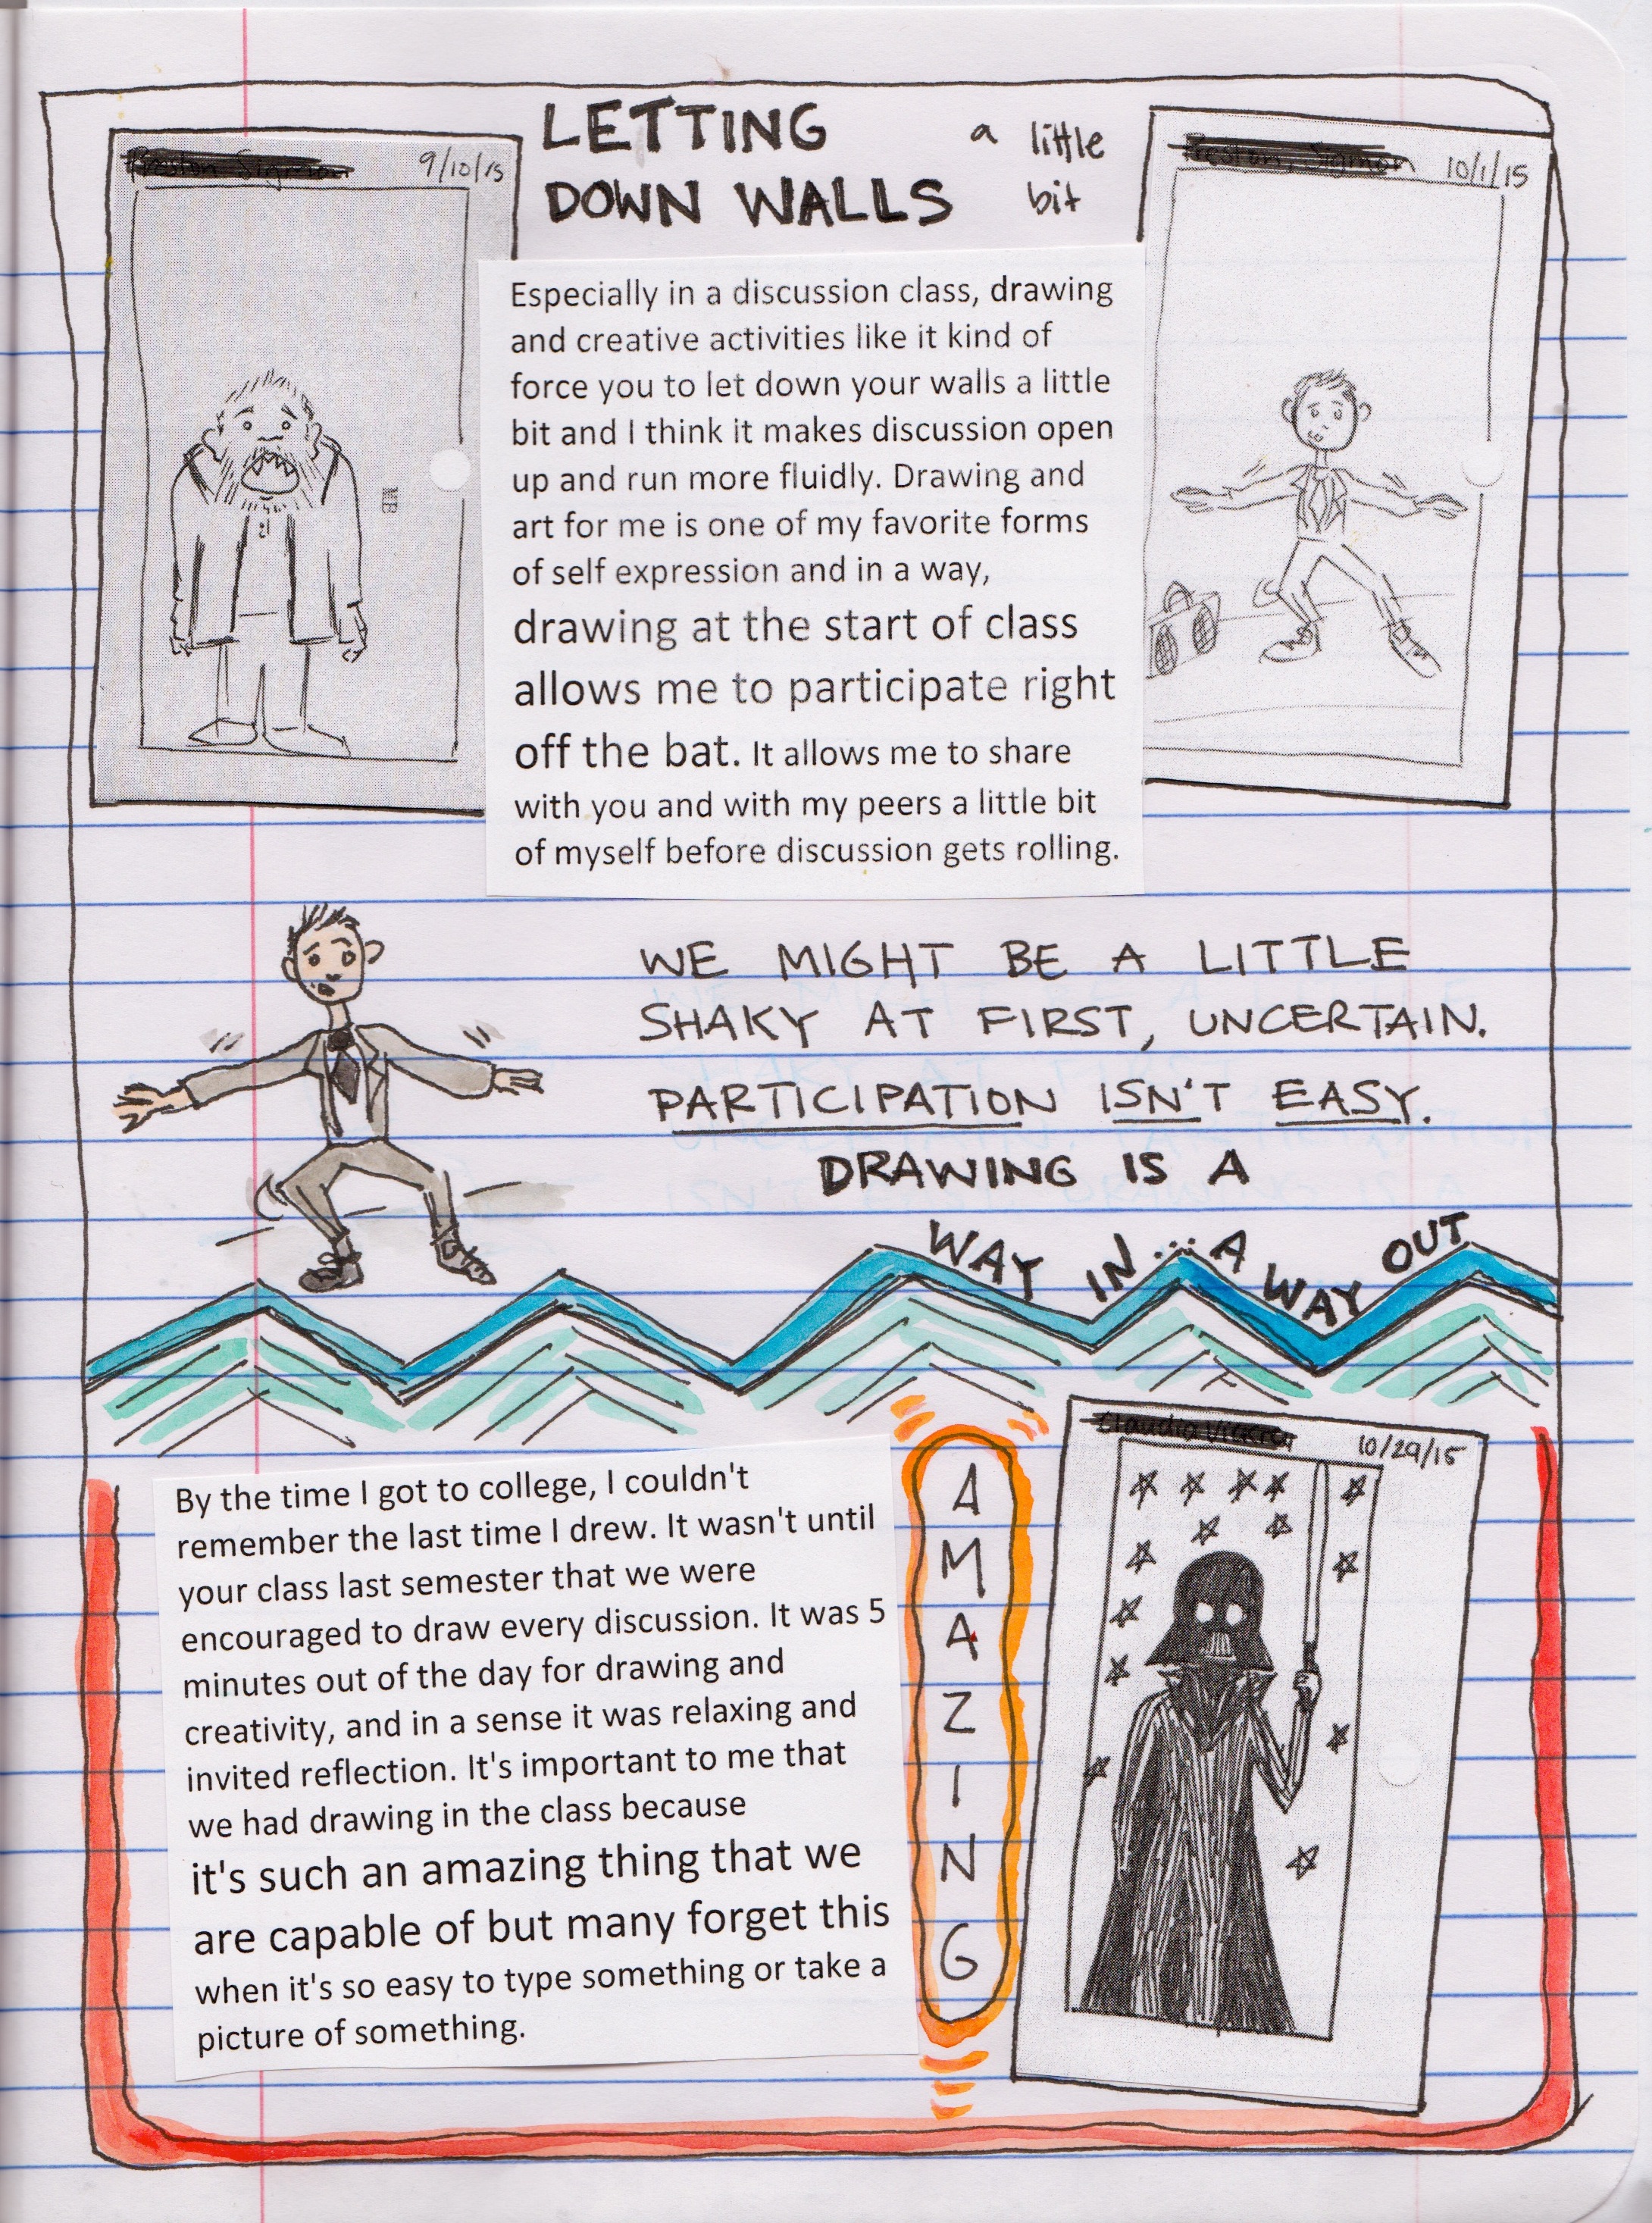 9/10/15
LETTING
DOWN WALLS
a little
bit
10/1/15
Especially in a discussion class, drawing
and creative activities like it kind of
force you to let down your walls a little
bit and I think it makes discussion open
up and run more fluidly. Drawing and
art for me is one of my favorite forms
of self expression and in a way,
drawing at the start of class
allows me to participate right
off the bat. It allows me to share
with you and with my peers a little bit
of myself before discussion gets rolling.
WE MIGHT BE A LITTLE
SHAKY AT FIRST, UNCERTAIN.
PARTICIPATION ISN'T EASY.
DRAWING IS A
WAY IN... A WAY OUT
By the time I got to college, I couldn't
remember the last time I drew. It wasn't until
your class last semester that we were
encouraged to draw every discussion. It was 5
minutes out of the day for drawing and
creativity, and in a sense it was relaxing and
invited reflection. It's important to me that
we had drawing in the class because
it's such an amazing thing that we
are capable of but many forget this
when it's so easy to type something or take a
picture of something.
AMAZING
10/29/15